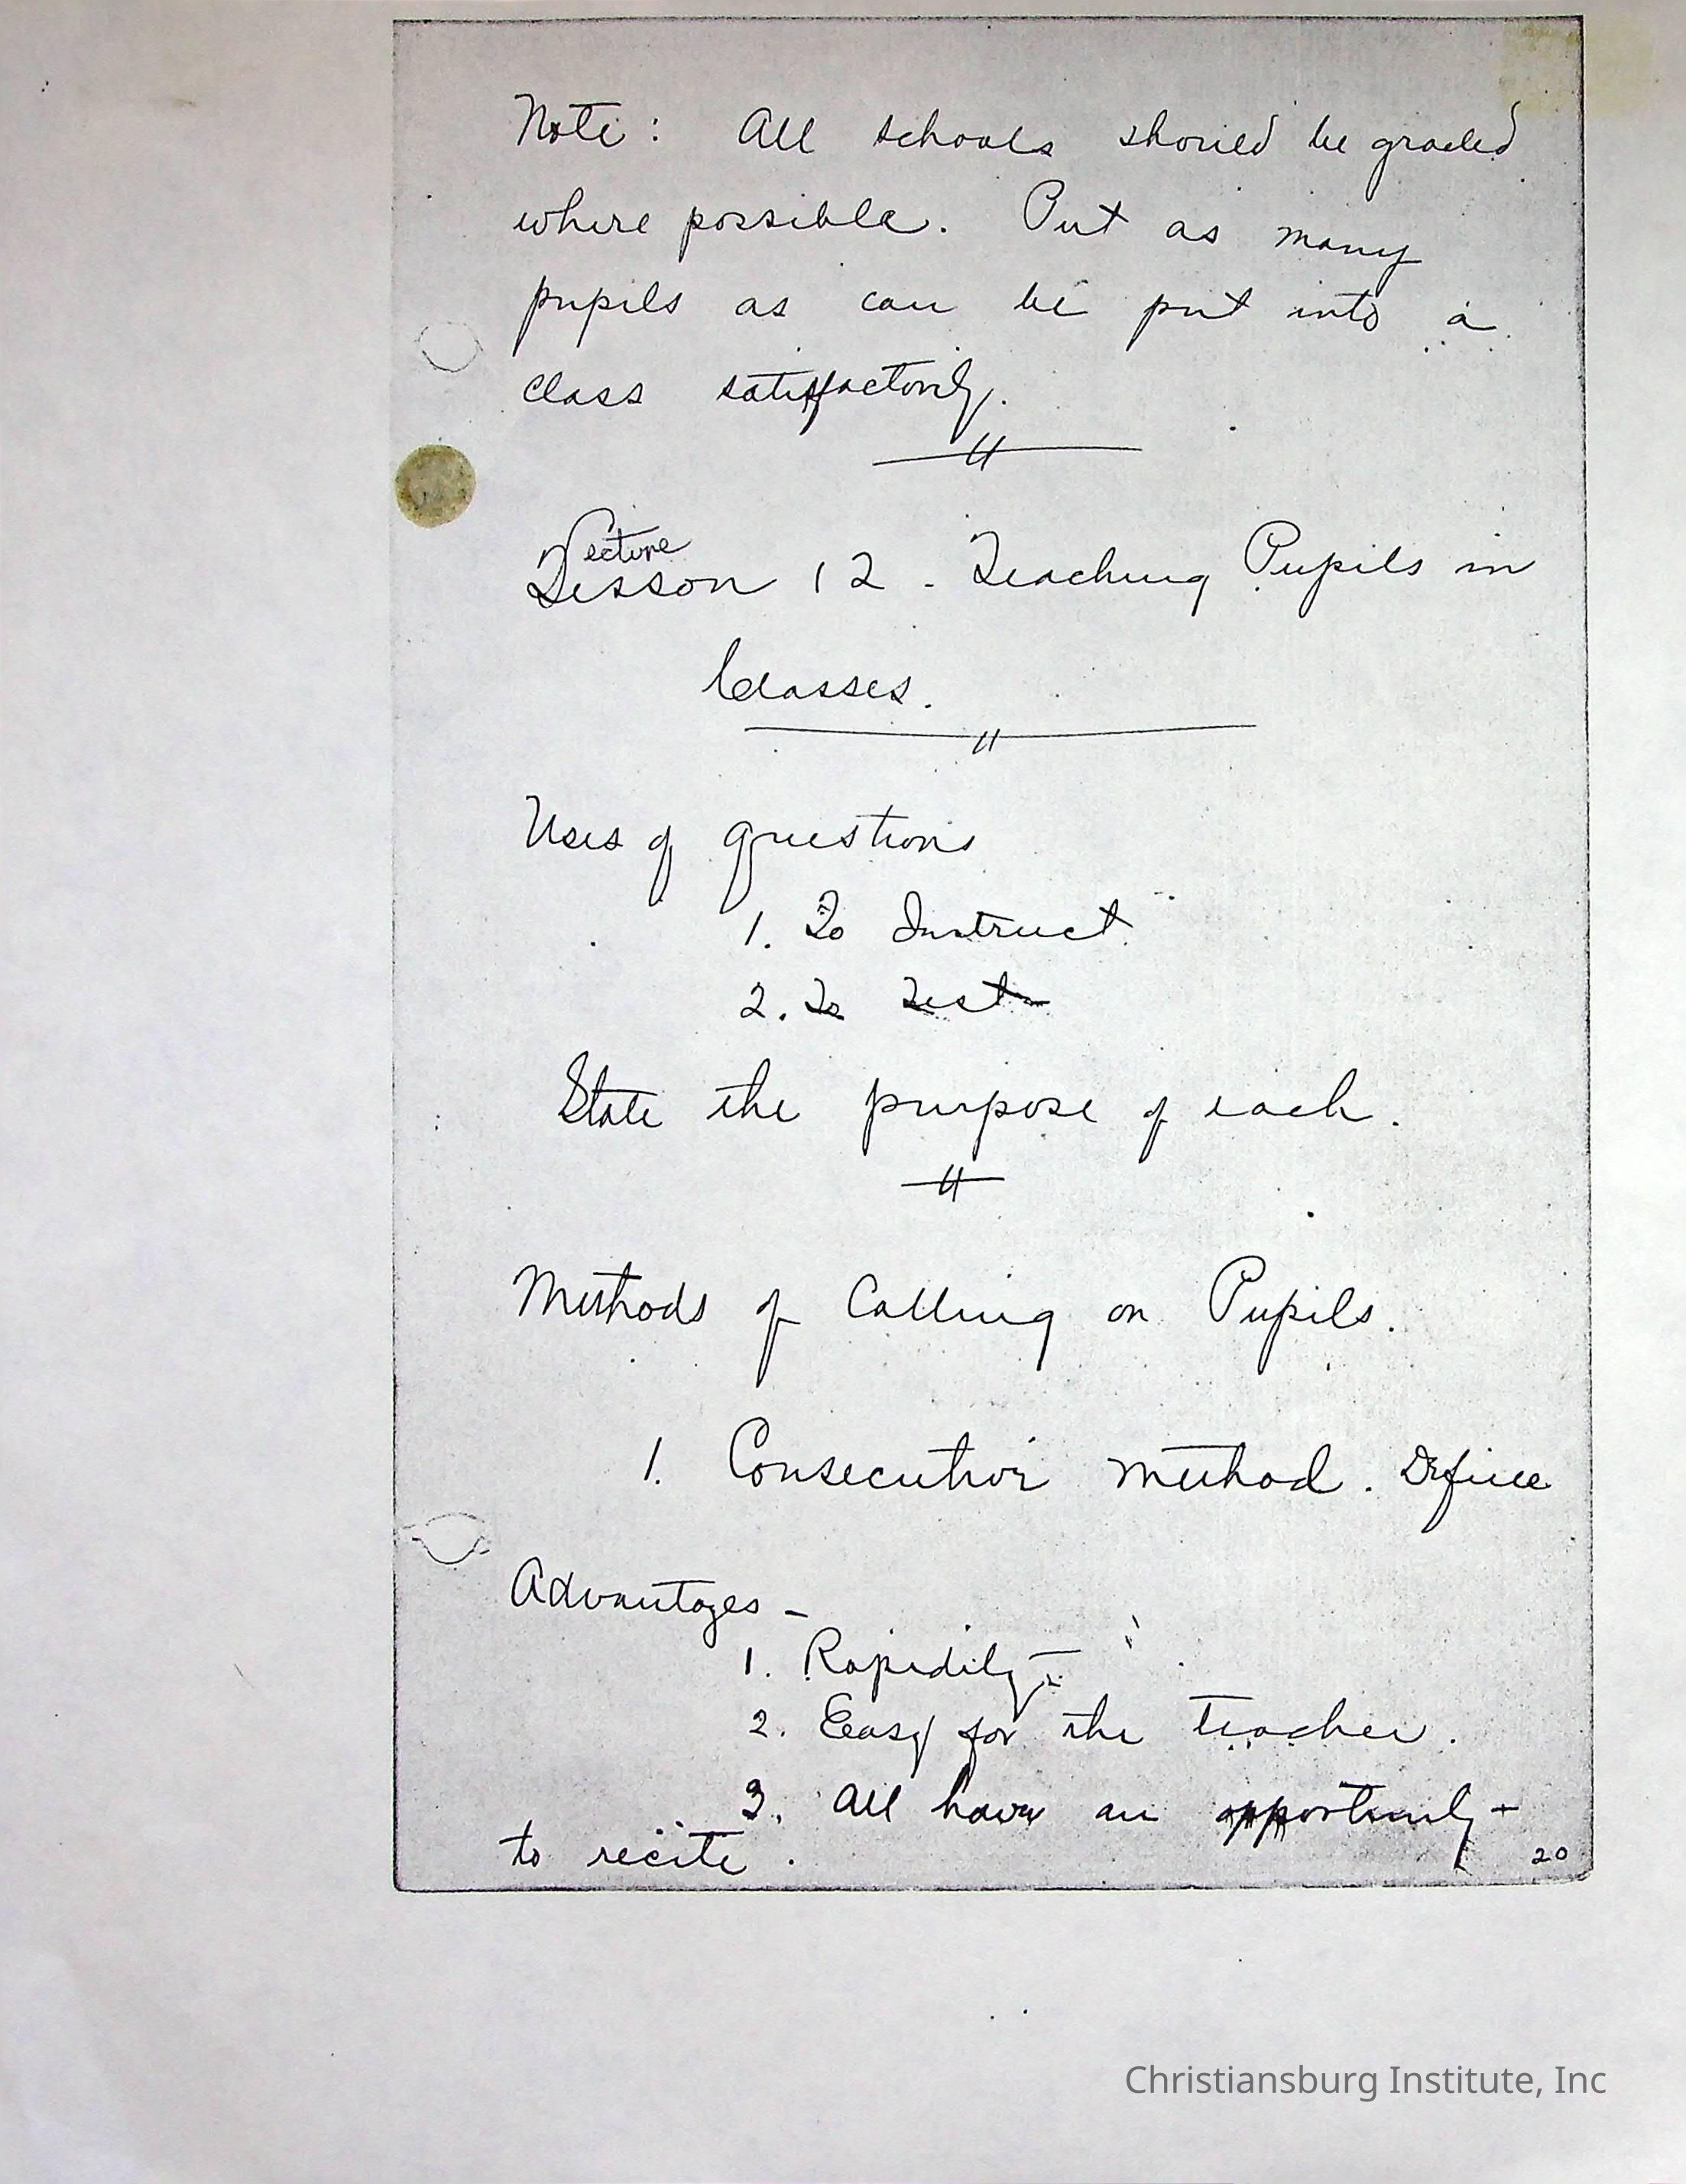 Note: All schools should be graded
where possible. Put as many
pupils as can be put into a
class satisfactorily.
Lecture
Lesson 12 - Teaching Pupils in
Classes.
Uses of questions
1. To Instruct
2. To Test
State the purpose of each.
Methods of Calling on Pupils.
1. Consecutive method. Define
Advantages -
1. Rapidity
2. Easy for the teacher.
3. All have an opportunity
to recite.
20
Christiansburg Institute, Inc